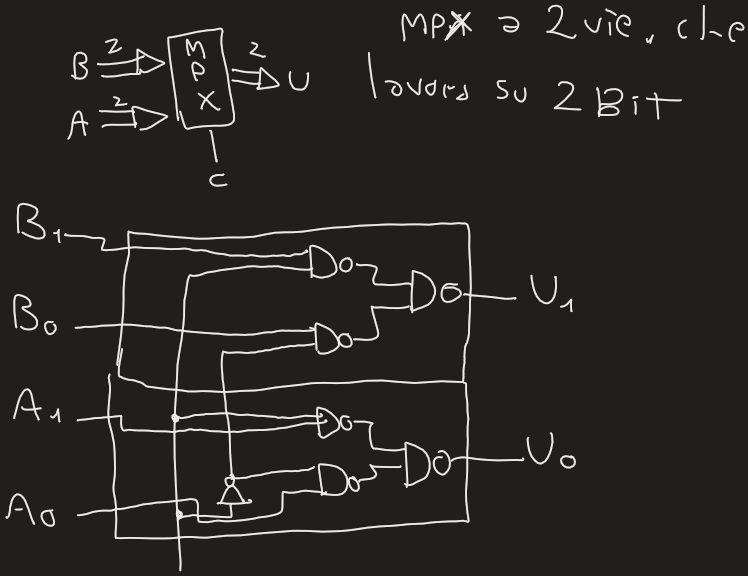 MPX a 2 vie, che
lavora su 2 Bit
B 2
MPX
2 U
A 2
C
B1
U1
B0
A1
U0
A0